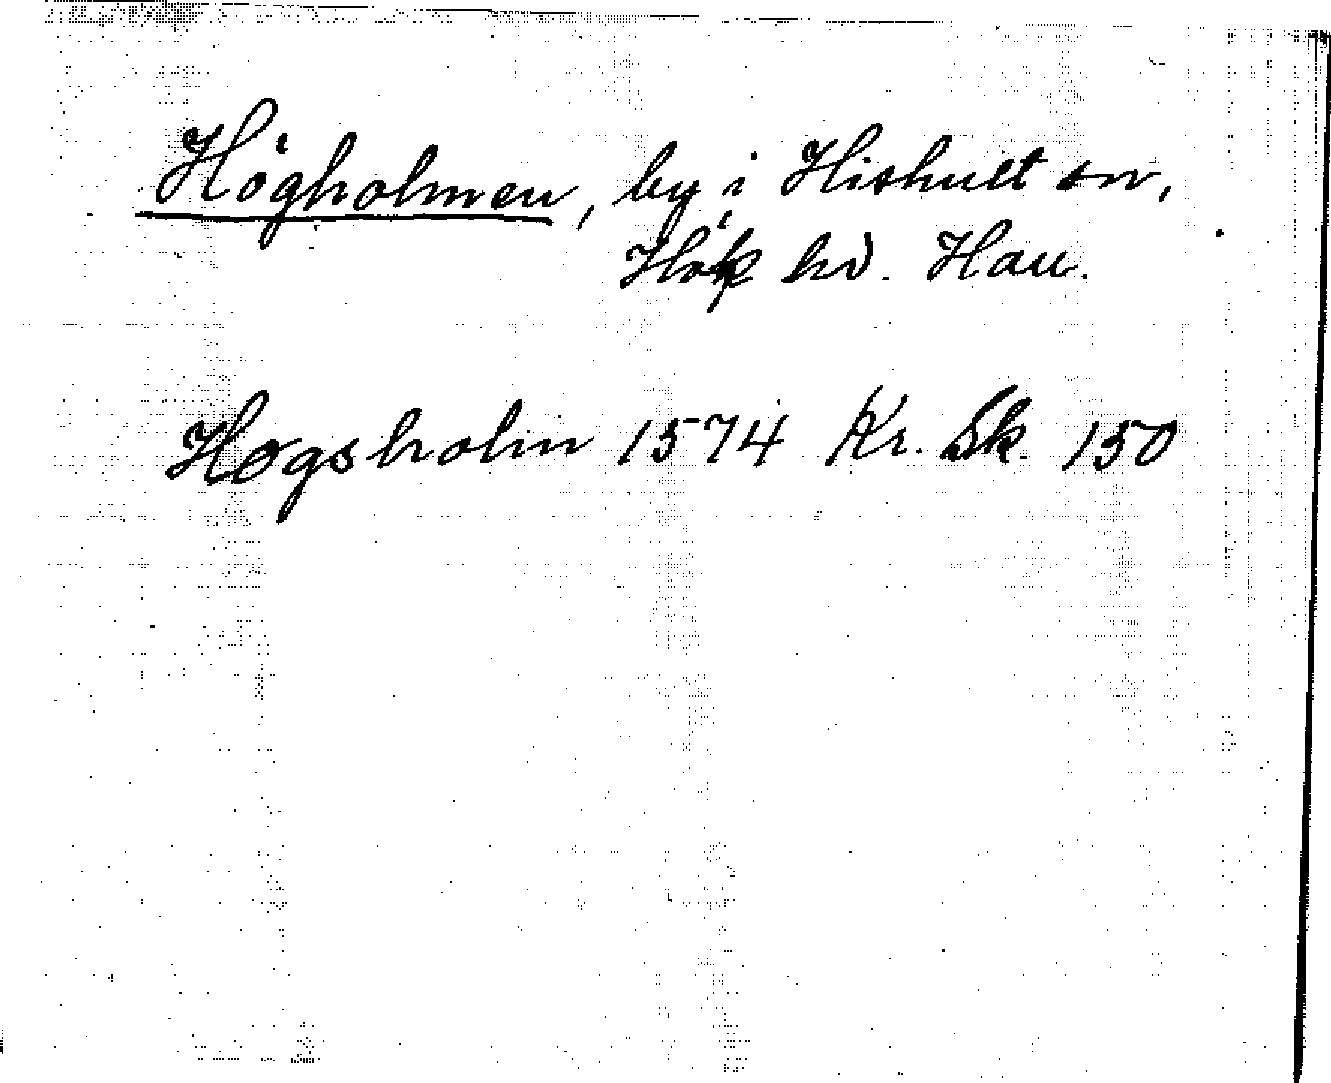 Högholmen, by i Hishult sn,
Hök hd. Hall.
Høgsholm 1574 Kr. Sk. 150